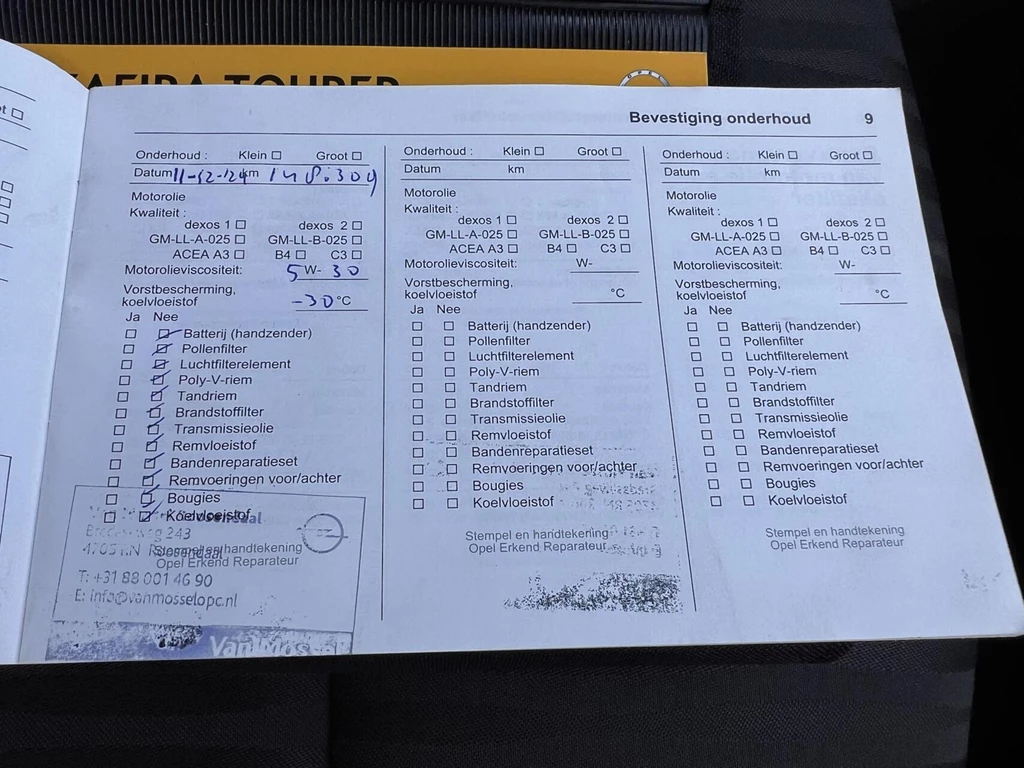 ZAFIRA TOURER
OPEL
Bevestiging onderhoud 9
Onderhoud : Klein ☐ Groot ☐
Datum 11-12-'24 km 148.309
Motorolie
Kwaliteit :
dexos 1 ☐ dexos 2 ☐
GM-LL-A-025 ☐ GM-LL-B-025 ☐
ACEA A3 ☐ B4 ☐ C3 ☐
Motorolieviscositeit: 5 W- 30
Vorstbescherming,
koelvloeistof -30 °C
Ja Nee
Batterij (handzender)
Pollenfilter
Luchtfilterelement
Poly-V-riem
Tandriem
Brandstoffilter
Transmissieolie
Remvloeistof
Bandenreparatieset
Remvoeringen voor/achter
Bougies
Koelvloeistof
Stempel en handtekening
Opel Erkend Reparateur
243
Roosendaal
T: +31 88 001 46 90
E: info@vanmosselopc.nl
Van Mossel
Onderhoud : Klein ☐ Groot ☐
Datum km
Motorolie
Kwaliteit :
dexos 1 ☐ dexos 2 ☐
GM-LL-A-025 ☐ GM-LL-B-025 ☐
ACEA A3 ☐ B4 ☐ C3 ☐
Motorolieviscositeit: W-
Vorstbescherming,
koelvloeistof °C
Ja Nee
☐ ☐ Batterij (handzender)
☐ ☐ Pollenfilter
☐ ☐ Luchtfilterelement
☐ ☐ Poly-V-riem
☐ ☐ Tandriem
☐ ☐ Brandstoffilter
☐ ☐ Transmissieolie
☐ ☐ Remvloeistof
☐ ☐ Bandenreparatieset
☐ ☐ Remvoeringen voor/achter
☐ ☐ Bougies
☐ ☐ Koelvloeistof
Stempel en handtekening
Opel Erkend Reparateur
Onderhoud : Klein ☐ Groot ☐
Datum km
Motorolie
Kwaliteit :
dexos 1 ☐ dexos 2 ☐
GM-LL-A-025 ☐ GM-LL-B-025 ☐
ACEA A3 ☐ B4 ☐ C3 ☐
Motorolieviscositeit: W-
Vorstbescherming,
koelvloeistof °C
Ja Nee
☐ ☐ Batterij (handzender)
☐ ☐ Pollenfilter
☐ ☐ Luchtfilterelement
☐ ☐ Poly-V-riem
☐ ☐ Tandriem
☐ ☐ Brandstoffilter
☐ ☐ Transmissieolie
☐ ☐ Remvloeistof
☐ ☐ Bandenreparatieset
☐ ☐ Remvoeringen voor/achter
☐ ☐ Bougies
☐ ☐ Koelvloeistof
Stempel en handtekening
Opel Erkend Reparateur